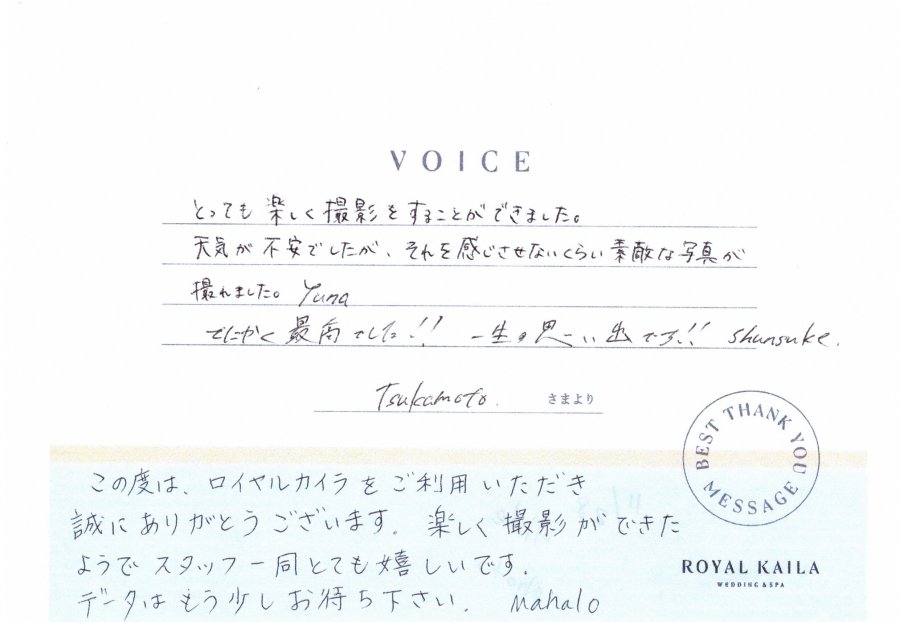 VOICE
とっても楽しく撮影をすることができました。
天気が不安でしたが、それを感じさせないくらい素敵な写真が
撮れました。Yuna
とにかく最高でした!! 一生の思い出です!! Shunsuke.
Tsukamoto. さまより
BEST THANK YOU MESSAGE
この度は、ロイヤルカイラをご利用いただき
誠にありがとうございます。楽しく撮影ができた
ようでスタッフ一同とても嬉しいです。
データはもう少しお待ち下さい。 mahalo
ROYAL KAILA
WEDDING & SPA